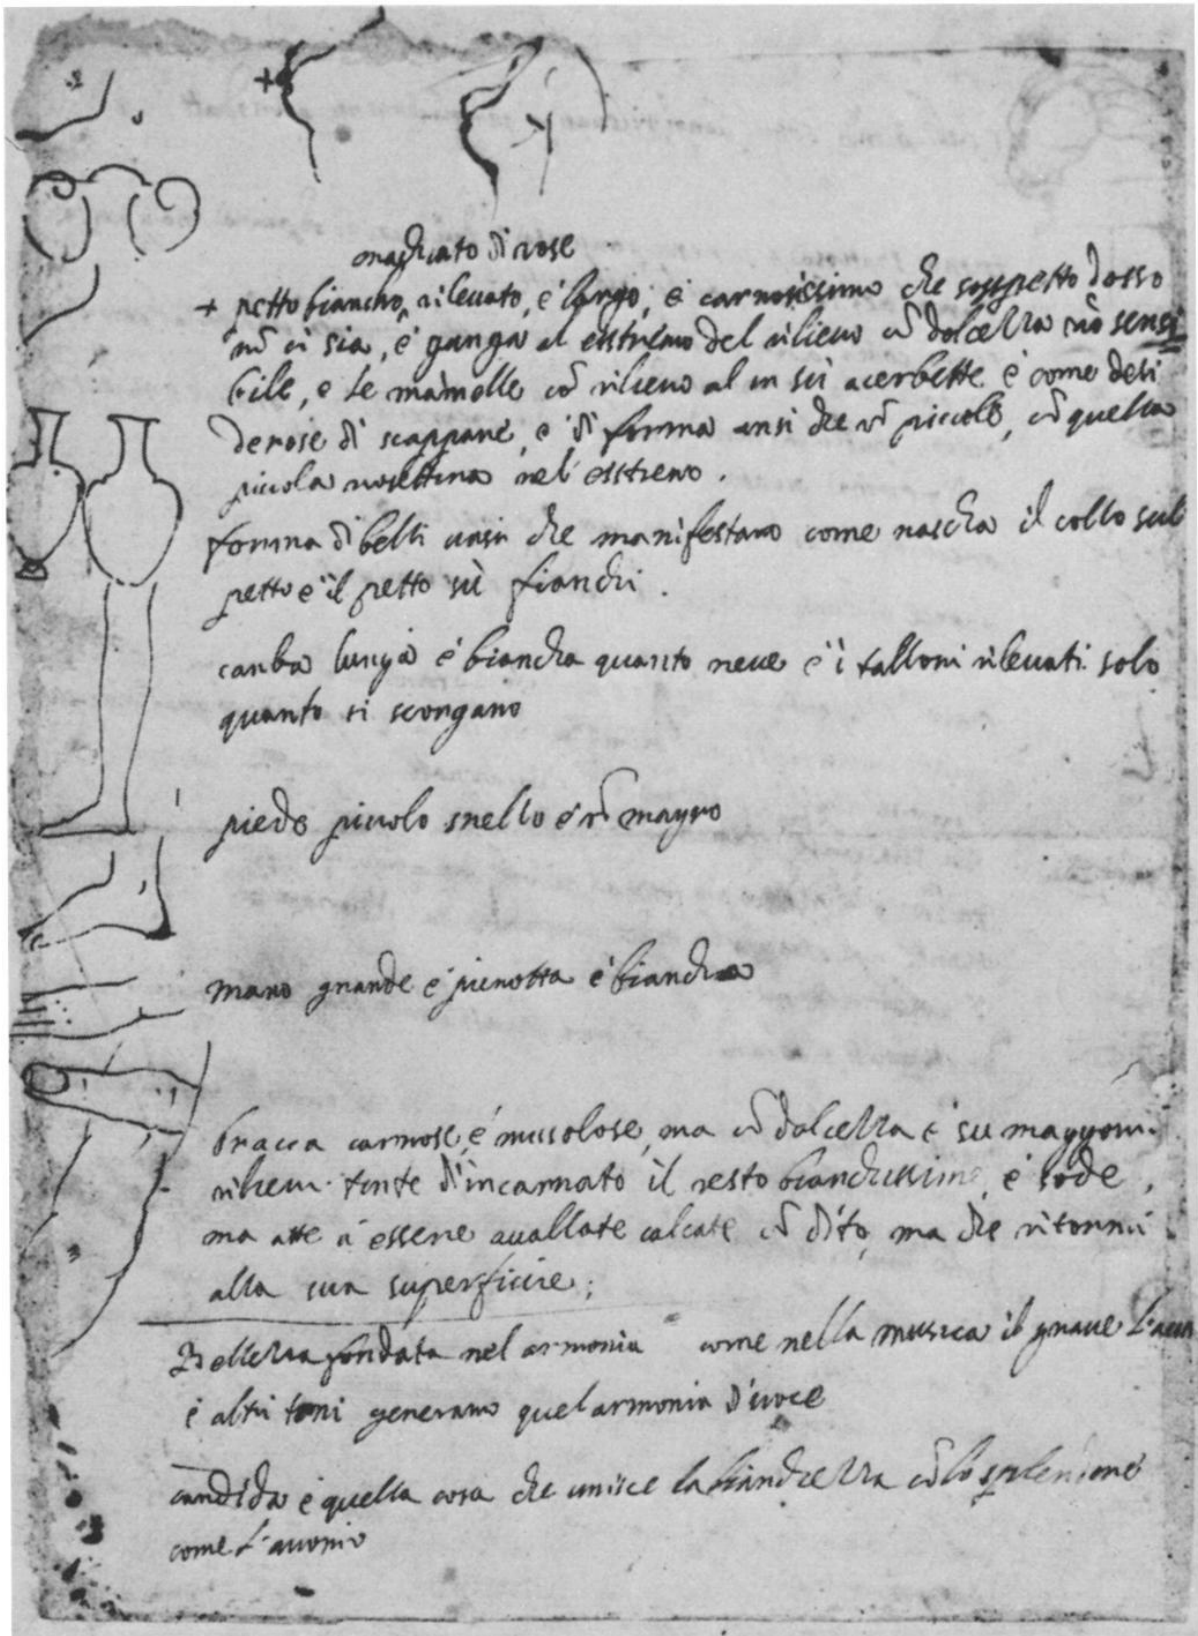 machiato di rose
+ petto biancho, rilevato, e largo, e carnosissimo che sospetto dosso
nō vi sia, e gunga al estremo del rilievo cō dolcezza nō sensi
bile, e le mamelle cō rilievo al in sù acerbette e come desi
derose di scappare, e di forma ansi che nō piccole, cō quella
picola rosettina nel estremo.
forma di belli vasi che manifestano come nascha il collo sul
petto e il petto sù fianchi.
canba lunga e biancha quanto neve e i talloni rilevati solo
quanto si scorgano
piede picolo snello e nō magro
mano grande e pienotta e biancha
bracca carnose, e muscolose, ma cō dolcezza e su maggiori
rilievi tinte d'incarnato il resto bianchissime, e sode,
ma atte a essere avallate calcate cō dito, ma che ritorni
alla sua superficie;
Bellezza fondata nel armonia come nella musica il grave
e altri toni generano quel armonia di voce
candida e quella cosa che unisce la bianchezza cō lo splendore
come l'avorio